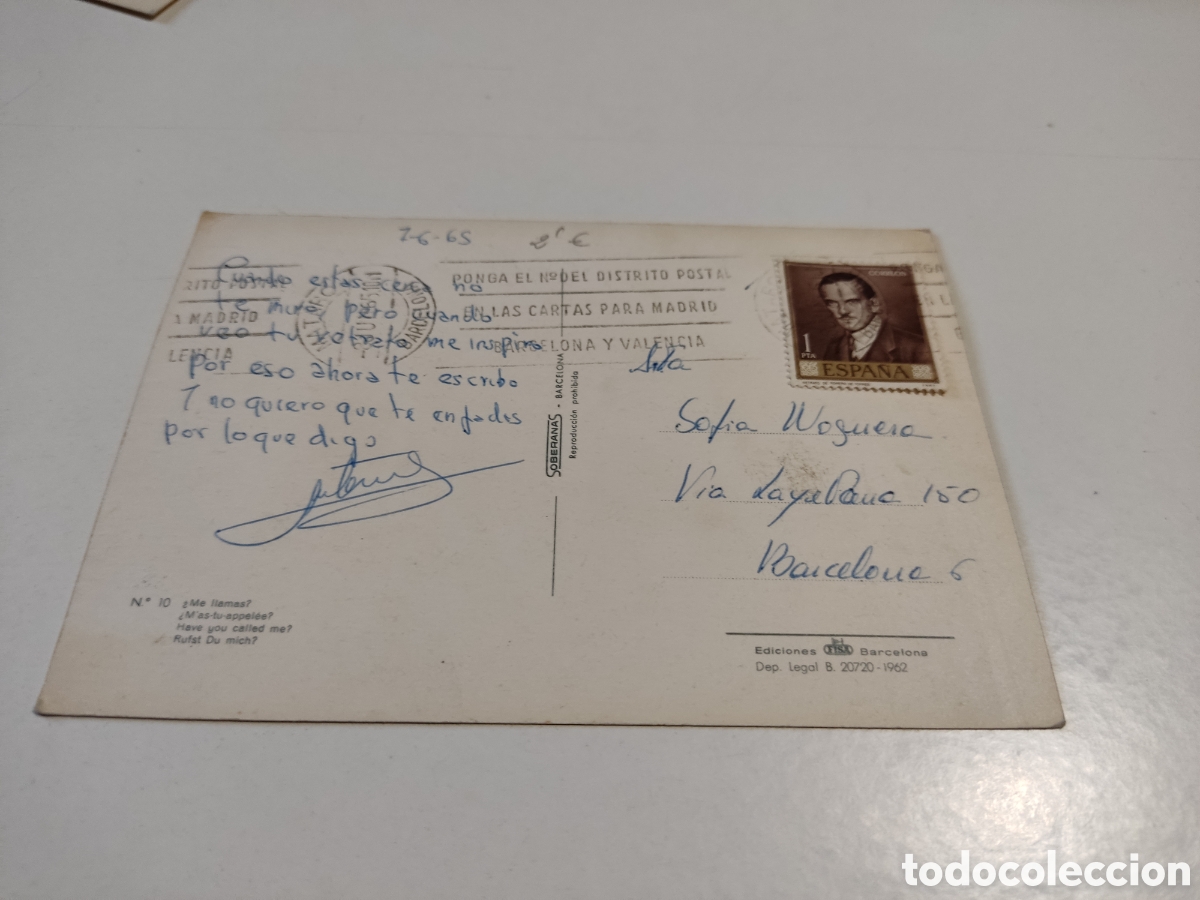 7-6-65 2'€
Cuando estas cerca no
te miro pero cuando
veo tu retrato me inspiro
por eso ahora te escribo
Y no quiero que te enfades
por lo que digo
RITO POSTAL
A MADRID
LENCIA
BARCELONA
PONGA EL Nº DEL DISTRITO POSTAL
EN LAS CARTAS PARA MADRID
BARCELONA Y VALENCIA
CORREOS
1
PTA
ESPAÑA
Srta
Sofia Noguera
Via Layetana 150
Barcelona 6
SOBERANAS - BARCELONA
Reproducción prohibida
N.º 10 ¿Me llamas?
¿M'as-tu-appelée?
Have you called me?
Rufst Du mich?
Ediciones FISA Barcelona
Dep. Legal B. 20720-1962
todocoleccion